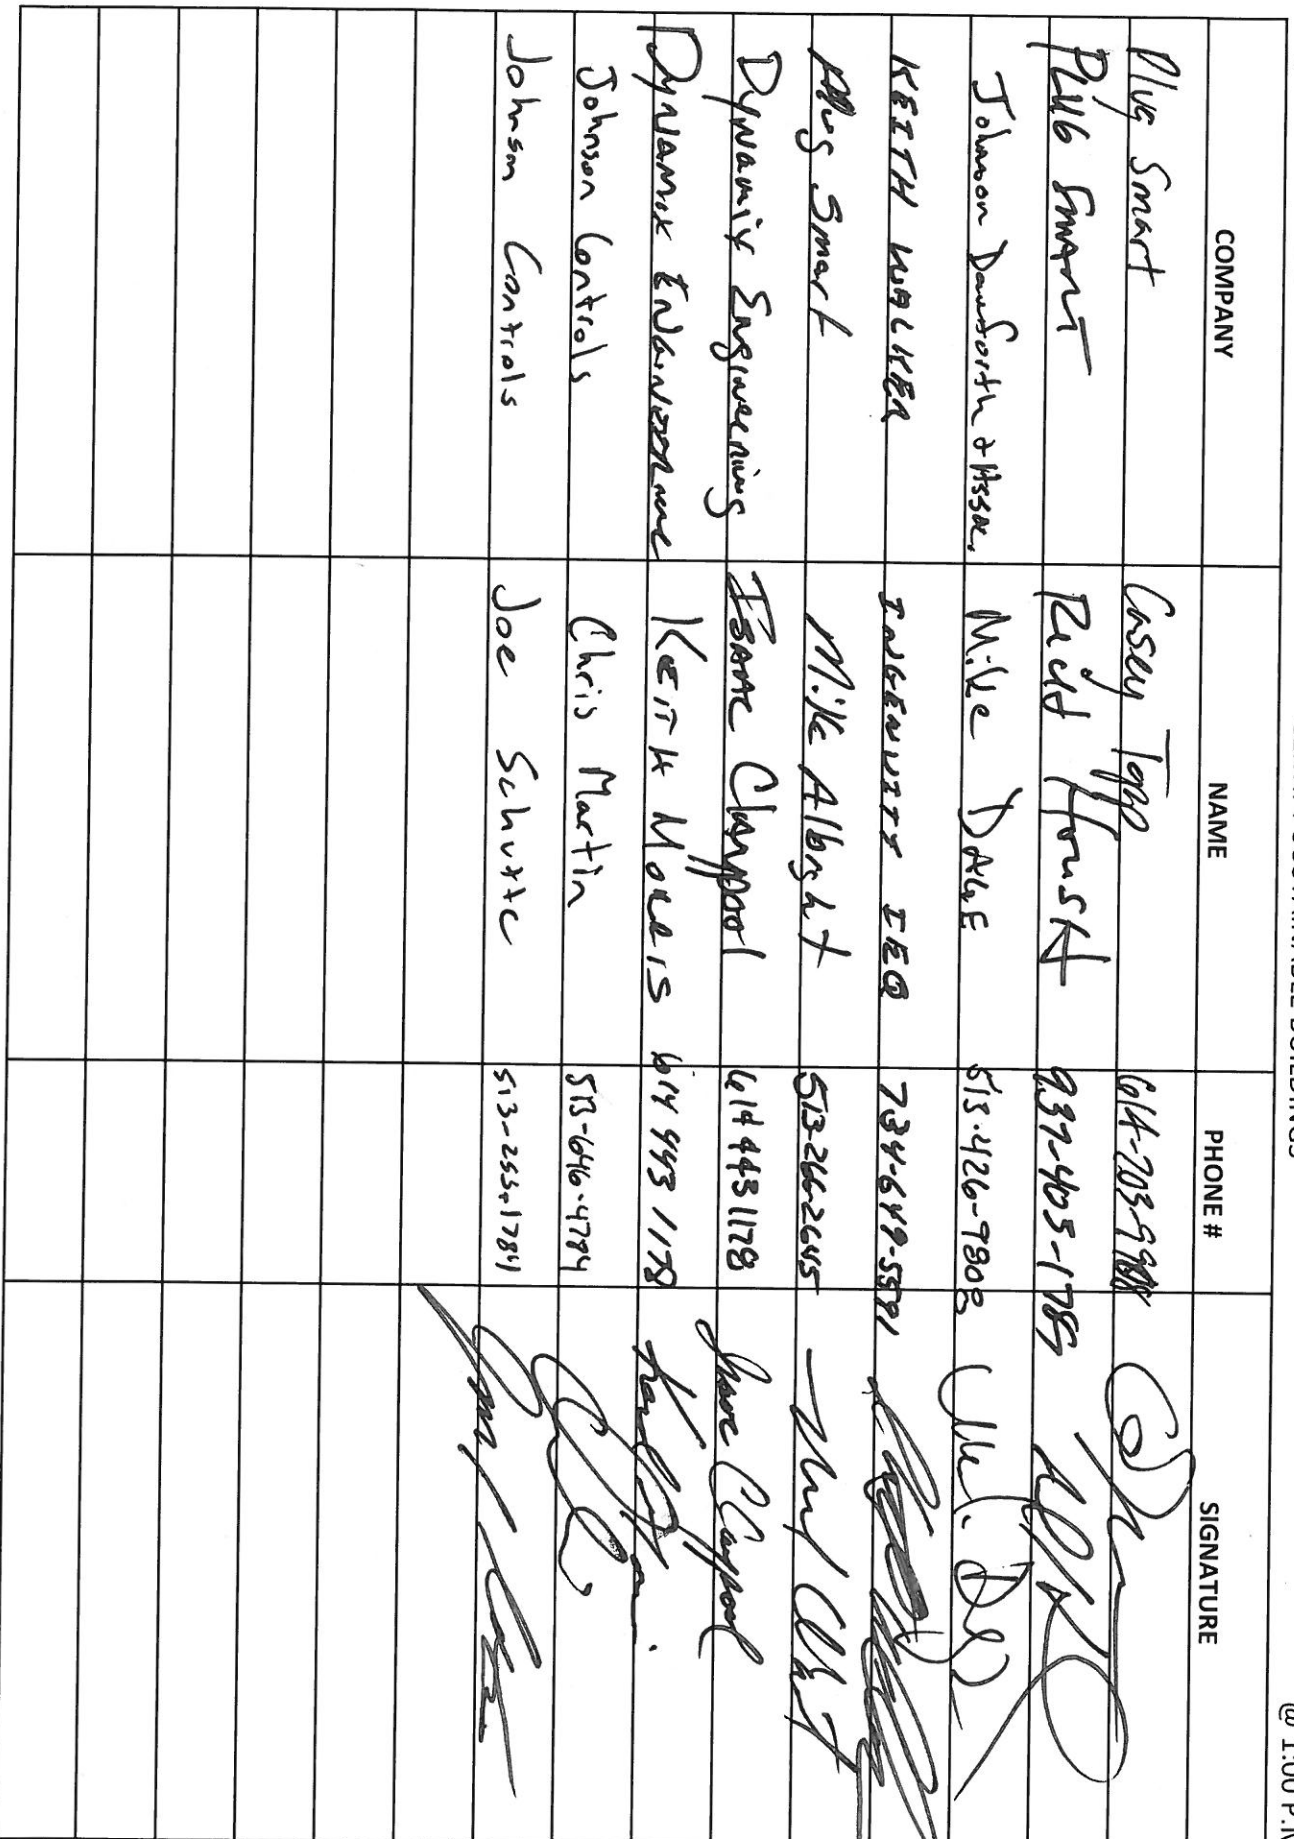 SUSTAINABLE BUILDINGS
@ 1:00 P.M
COMPANY NAME PHONE # SIGNATURE
Plug Smart Casey Tapp 614-203-9988
PLUG SMART 937-403-1789
Johnson Danforth & Assoc. Mike DAUE 513-426-9808
KEITH WALKER INGENUITY IEQ 734-649-5591
Plug Smart Mike Albright 513-266-2645
Dynamix Engineering ISAAC Claypool 614 443 1178 Isaac Claypool
DYNAMIX ENGINEERING KEITH MORRIS 614 443 1178
Johnson Controls Chris Martin 513-646-4784
Johnson Controls Joe Schutte 513-255-1784